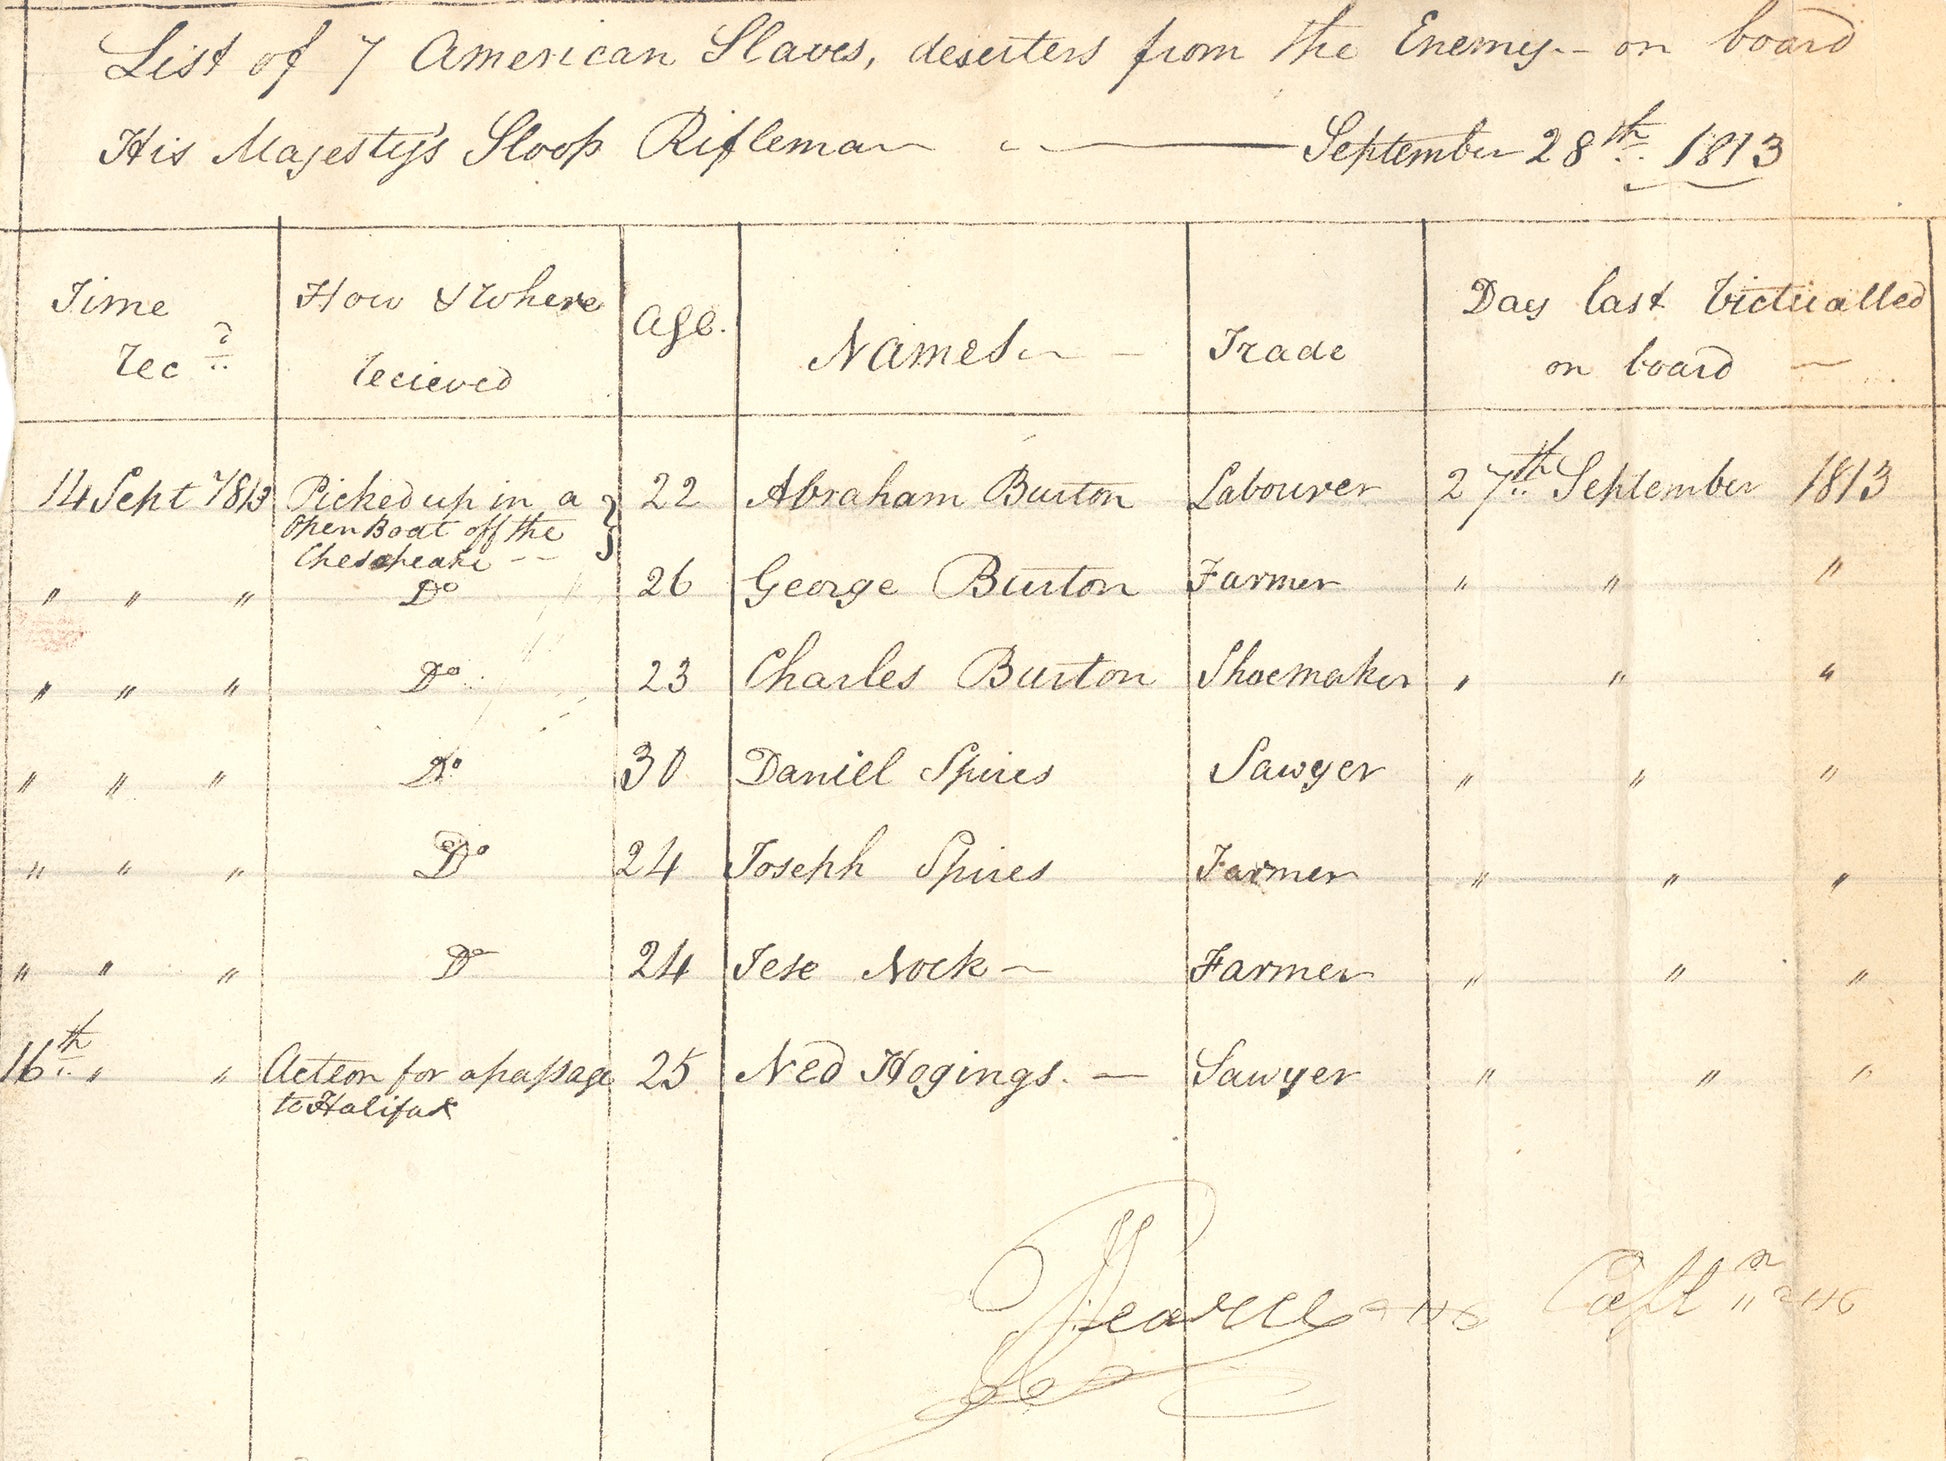 List of 7 American Slaves, deserters from the Enemy - on board
His Majesty's Sloop Rifleman - September 28th 1813
Time Recd
How & Where recieved
Age.
Names
Trade
Day last Victualled on board
14 Sept 1813 Picked up in a open Boat off the Chesepeake 22 Abraham Burton Labourer 27th September 1813
" " " Do 26 George Burton Farmer " " "
" " " Do 23 Charles Burton Shoemaker " " "
" " " Do 30 Daniel Spires Sawyer " " "
" " " Do 24 Joseph Spires Farmer " " "
" " " Do 24 Jese Nock - Farmer " " "
16th " " Acteon for a passage to Halifax 25 Ned Hogings. - Sawyer " " "
Pearce Captn